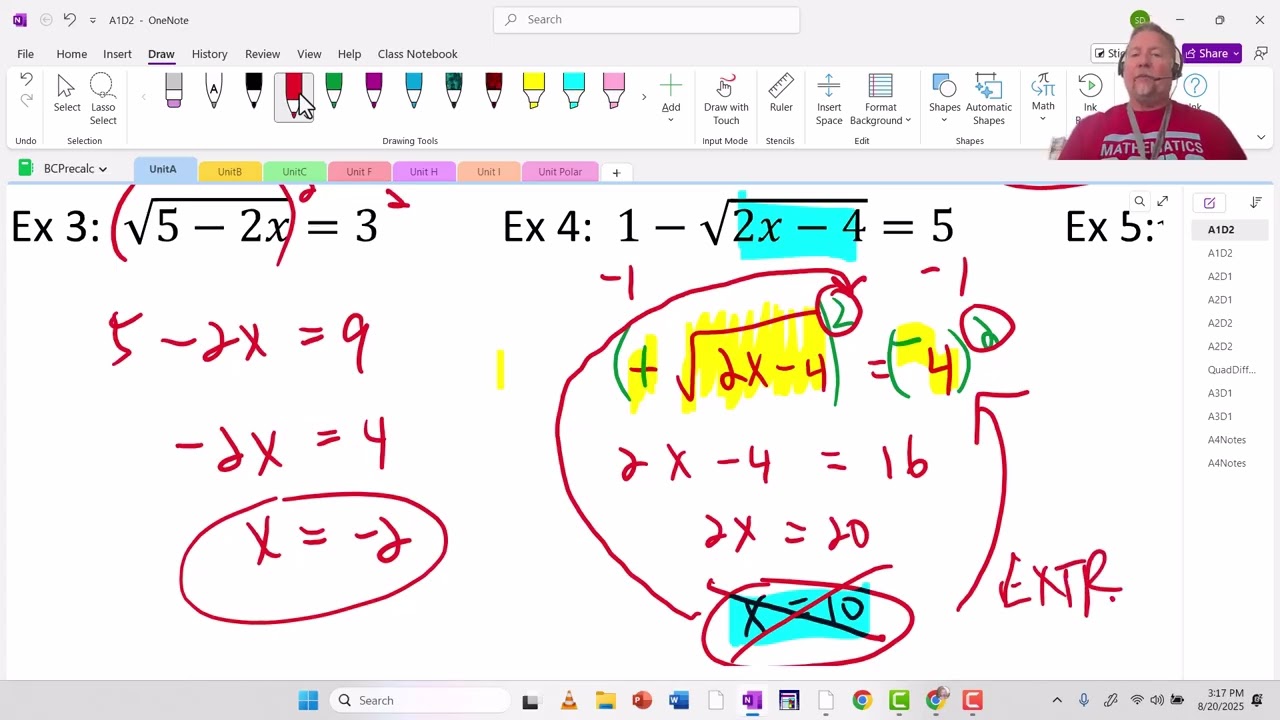 A1D2 - OneNote
Search
SD
File Home Insert Draw History Review View Help Class Notebook
Share
Select
Lasso Select
Add
Draw with Touch
Ruler
Insert Space
Format Background
Shapes
Automatic Shapes
Math
Ink
Undo Selection Drawing Tools Input Mode Stencils Edit Shapes
MATHEMATICS
BCPrecalc UnitA UnitB UnitC Unit F Unit H Unit I Unit Polar +
A1D2
A1D2
A2D1
A2D1
A2D2
A2D2
QuadDiff...
A3D1
A3D1
A4Notes
A4Notes
Ex 3: (√5 − 2x)² = 3²
5 − 2x = 9
−2x = 4
x = −2
Ex 4: 1 − √2x − 4 = 5
−1 −1
(+ √2x−4)² = (−4)²
2x − 4 = 16
2x = 20
x = 10
EXTR.
Ex 5:
Search
3:17 PM
8/20/2025